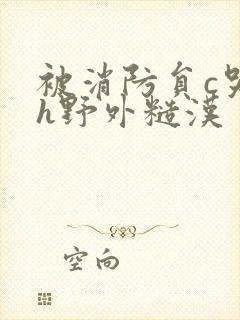 被消防员c哭
h野外糙漢
空向